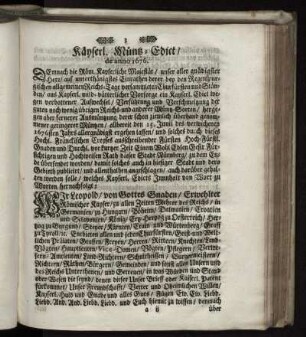 1
Käyserl. Müntz-Edict /
de anno 1676.
DEmnach die Röm. Kayserliche Majestät / unser aller gnädigster
Herr / auf unterthänigstes Einrathen derer bey den Regenspur-
gischen allgemeinen Reichs-Tag versammleten Churfürsten und Stän-
den / aus Käyserl. mild-väterlicher Vorsorge ein Käyserl. Edict we-
gen verbottener Auswechsel / Verführung und Verschmeltzung der
guten noch wenigen Reichs- und anderer Müntz-Sorten /
gen aber fernerer Aufmüntzung derer schon ziemlich überhand genom-
menen geringeren Müntzen / allbereit den Junii des verwichenen
1676sten Jahrs allergnädigst ergehen lassen / und solches durch dieses
Hochl. Fränckischen Creyses ausschreibender Fürsten Hoch-Fürstl.
Gnaden und Durchl. vor kurtzer Zeit Einem Wol Edlen Gestr. Für-
sichtigen und Hochweisen Rath dieser Stadt Nürnberg / zu dem En-
de übersendet worden / damit solches auch in hiesiger Stadt und dero
Gebieth publicirt / und allenthalben angeschlagen / auch darüber gehal-
ten werden solle / welches Käyserl. Edicts Innhalt von Wort zu
Worten hernachfolgt:
WIr Leopold / von Gottes Gnaden / Erwehlter
Römischer Kayser / zu allen Zeiten Mehrer des Reichs / in
Germanien / zu Hungarn / Böheim / Dalmatien / Croatien
und Sclavonien / König / Ertz-Hertzog zu Oesterreich / Her-
zog zu Burgund / Steyer / Kärnten / Crain / und Würtemberg / Graf
zu Tyrol / etc. Entbieten allen und jeden Churfürsten / Geist- und Welt-
lichen Prälaten / Graffen / Freyen / Herren / Rittern / Knechten / Land-
Vögten / Hauptleuten / Vice-Domen / Vögten / Pflegern / Verwe-
sern / Amtleuten / Land-Richtern / Schultheissen / Burgermeistern /
Richtern / Räthen / Bürgern / Gemeinden / und sonst allen Unsern und
des Reichs Unterthanen / und Getreuen / in was Würden und Stand
oder Wesen die seynd / denen dieser Unser Brief oder Käiserl. Patent
fürkommet / Unser Freundschafft / Vetter und Oheimlichen Willen /
Kayserl. Huld und Gnade und alles Guts / Fügen Ew. Ew. Liebd.
Liebd. And. And. Liebd. Liebd. und Euch hiemit zu wissen / demnach
a ij
über